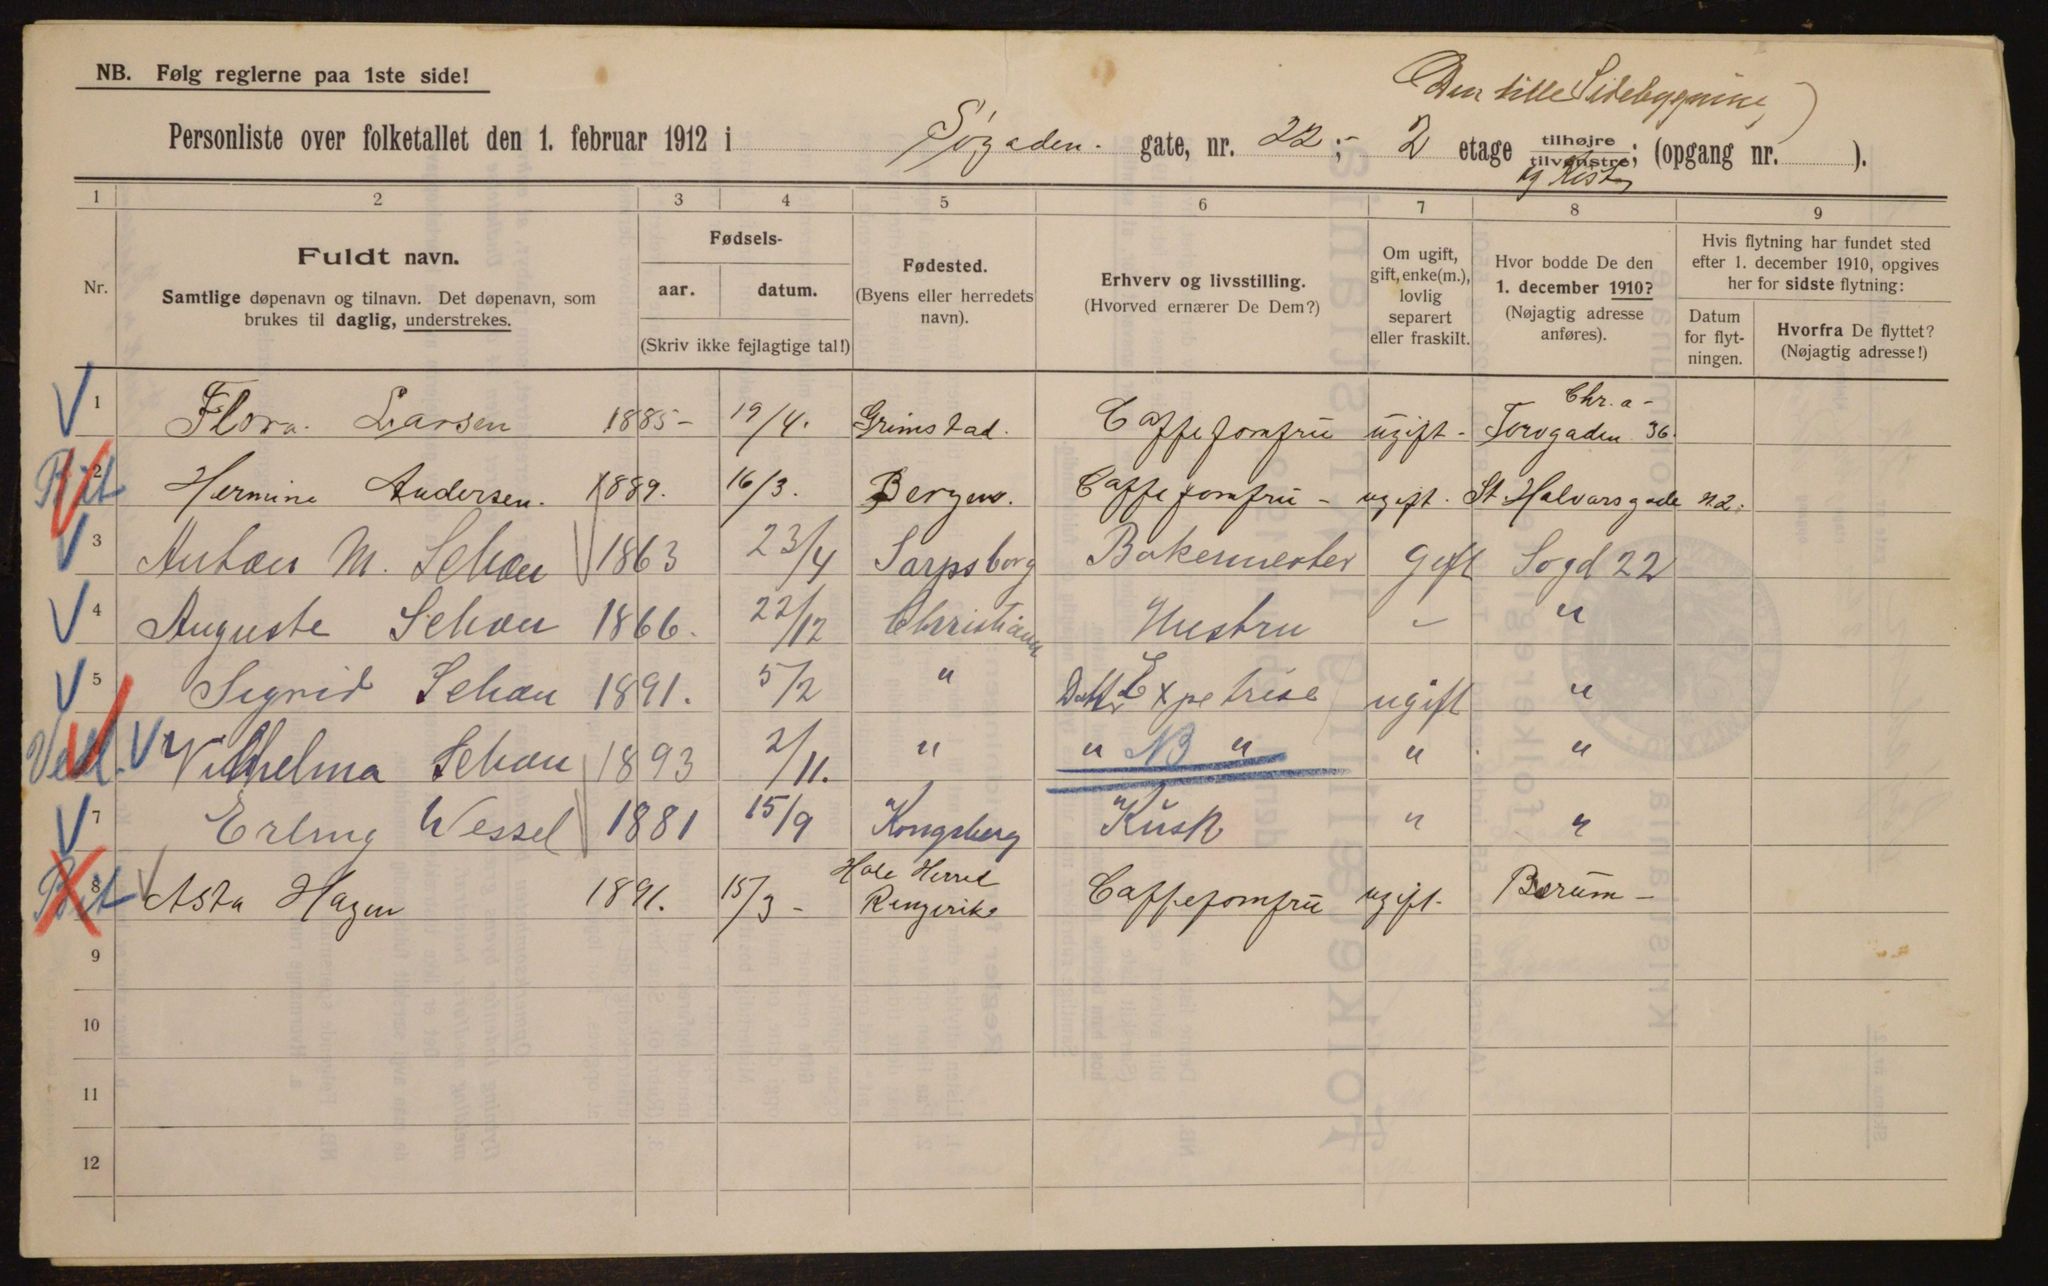 NB. Følg reglerne paa 1ste side!
Den lille Sidebygning
Personliste over folketallet den 1. februar 1912 i Søgaden. gate, nr. 22; - 2 etage tilhøjre tilvenstre; (opgang nr. ).
1 2 3 4 5 6 7 8 9
Nr.
Fuldt navn.
Samtlige døpenavn og tilnavn. Det døpenavn, som
brukes til daglig, understrekes.
Fødsels-
aar. datum.
(Skriv ikke fejlagtige tal!)
Fødested.
(Byens eller herredets
navn).
Erhverv og livsstilling.
(Hvorved ernærer De Dem?)
Om ugift,
gift, enke(m.),
lovlig
separert
eller fraskilt.
Hvor bodde De den
1. december 1910?
(Nøjagtig adresse
anføres).
Hvis flytning har fundet sted
efter 1. december 1910, opgives
her for sidste flytning:
Datum
for flyt-
ningen.
Hvorfra De flyttet?
(Nøjagtig adresse!)
1 Flora Larsen 1885 - 19/4. Grimstad. Caffejomfru ugift - Chr.a - Torvgaden 36.
2 Hermine Andersen. 1889. 16/3. Bergen. Caffejomfru - ugift. St. Halvarsgade n.2.
3 Anton M. Schou 1863 23/4 Sarpsborg Bakermester Gift Sogd 22
4 Auguste Schou 1866. 22/12 Christiania Hustru " "
5 Sigrid Schou 1891. 5/2 " Datter Expetrise ugift "
Vedl. Vilhelma Schou 1893 2/11. " " NB " " "
7 Erling Wessel 1881 15/9 Kongsberg Kusk " "
8 Asta Hagen 1891. 15/3 - Hole Herred Ringerike Caffejomfru ugift. Bærum -
9
10
11
12